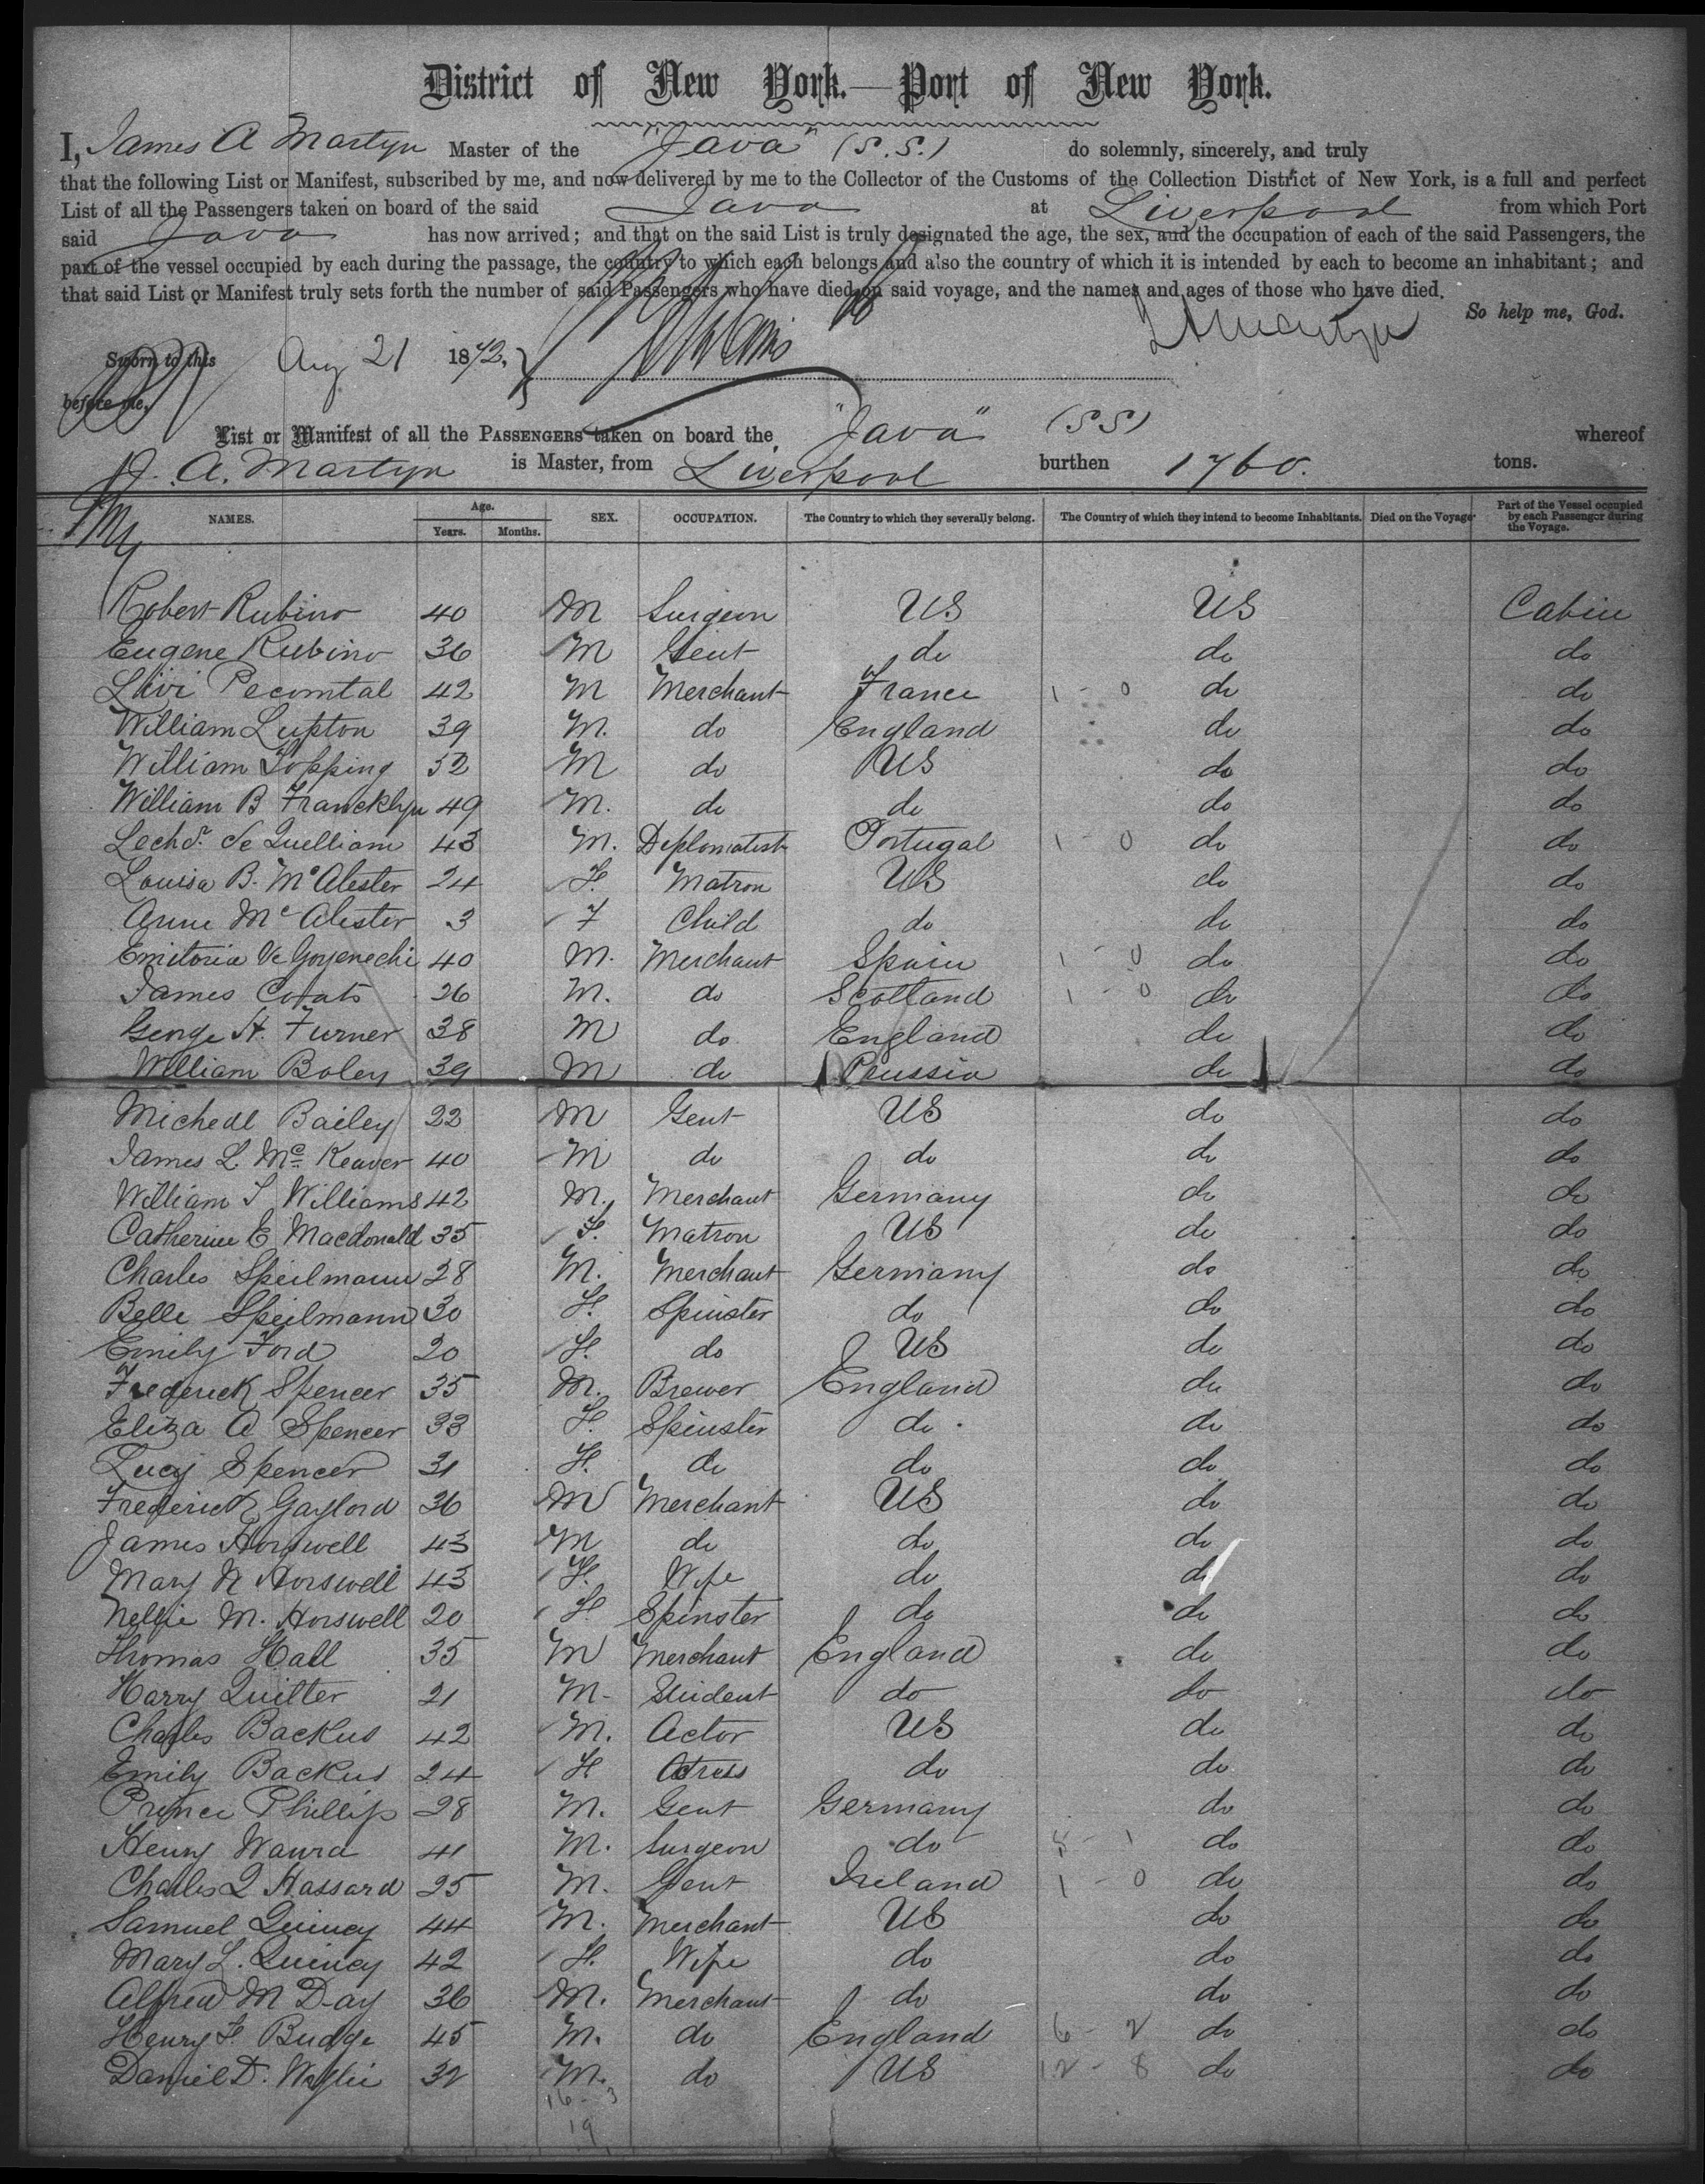 District of New York.—Port of New York.
I, James A Martyn Master of the "Java" (S.S.) do solemnly, sincerely, and truly
that the following List or Manifest, subscribed by me, and now delivered by me to the Collector of the Customs of the Collection District of New York, is a full and perfect
List of all the Passengers taken on board of the said Java at Liverpool from which Port
said Java has now arrived; and that on the said List is truly designated the age, the sex, and the occupation of each of the said Passengers, the
part of the vessel occupied by each during the passage, the country to which each belongs and also the country of which it is intended by each to become an inhabitant; and
that said List or Manifest truly sets forth the number of said Passengers who have died on said voyage, and the names and ages of those who have died.
So help me, God.
JAMartyn
Sworn to this Aug 21 1872,
before me,
List or Manifest of all the PASSENGERS taken on board the "Java" (SS) whereof
J. A. Martyn is Master, from Liverpool burthen 1760. tons.
NAMES. Age. Years. Months. SEX. OCCUPATION. The Country to which they severally belong. The Country of which they intend to become Inhabitants. Died on the Voyage Part of the Vessel occupied by each Passenger during the Voyage.
Robert Rubino 40 M Surgeon US US Cabin
Eugene Rubino 36 M Gent do do do
Pecomtal 42 M Merchant France 1 - 0 do do
William Lupton 39 M. do England do do
William Topping 52 M do US do do
William B Francklyn 49 M. do do do do
de Quelliam 43 M. Deplomatist Portugal 1 - 0 do do
Louisa B. McAlester 24 F. Matron US do do
Anne Mc Alester 3 F Child do do do
Emitoria De Goyenechi 40 M. Merchant Spain 1 - 0 do do
James Coats 26 M. do Scotland 1 - 0 do do
George H. Furner 38 M do England do do
William Boley 39 M do Prussia do do
Michell Bailey 22 M Gent US do do
James L. Mc Keaver 40 M do do do do
William S Williams 42 M. Merchant Germany do do
Catherine E Macdonald 35 F. Matron US do do
Charles Speilmann 28 M. Merchant Germany do do
Belle Speilmann 30 F. Spinster do do do
Emily Ford 20 F. do US do do
Frederick Spencer 35 M. Brewer England do do
Eliza A Spencer 33 F. Spinster do do do
Lucy Spencer 31 F. do do do do
Frederick Gaylord 36 M Merchant US do do
James Horswell 43 M do do do do
Mary N Horswell 43 F. Wife do do do
Nellie M. Horswell 20 F Spinster do do do
Thomas Hall 35 M Merchant England do do
Harry Quilter 21 M- Student do do do
Charles Backus 42 M. Actor US do do
Emily Backus 24 F Actress do do do
Prince Phillip 28 M. Gent Germany do do
Henry Waurd 41 M. Surgeon do 5 - 1 do do
Charles Q Hassard 25 M. Gent Ireland 1 - 0 do do
Samuel Quincy 44 M. Merchant US do do
Mary L. Quincy 42 F. Wife do do do
Alfred M Day 36 M. Merchant do do do
Henry F Budge 45 M. do England 6 - 2 do do
Daniel D. Wyllie 32 M. do US 12 - 8 do do
16 - 3
19